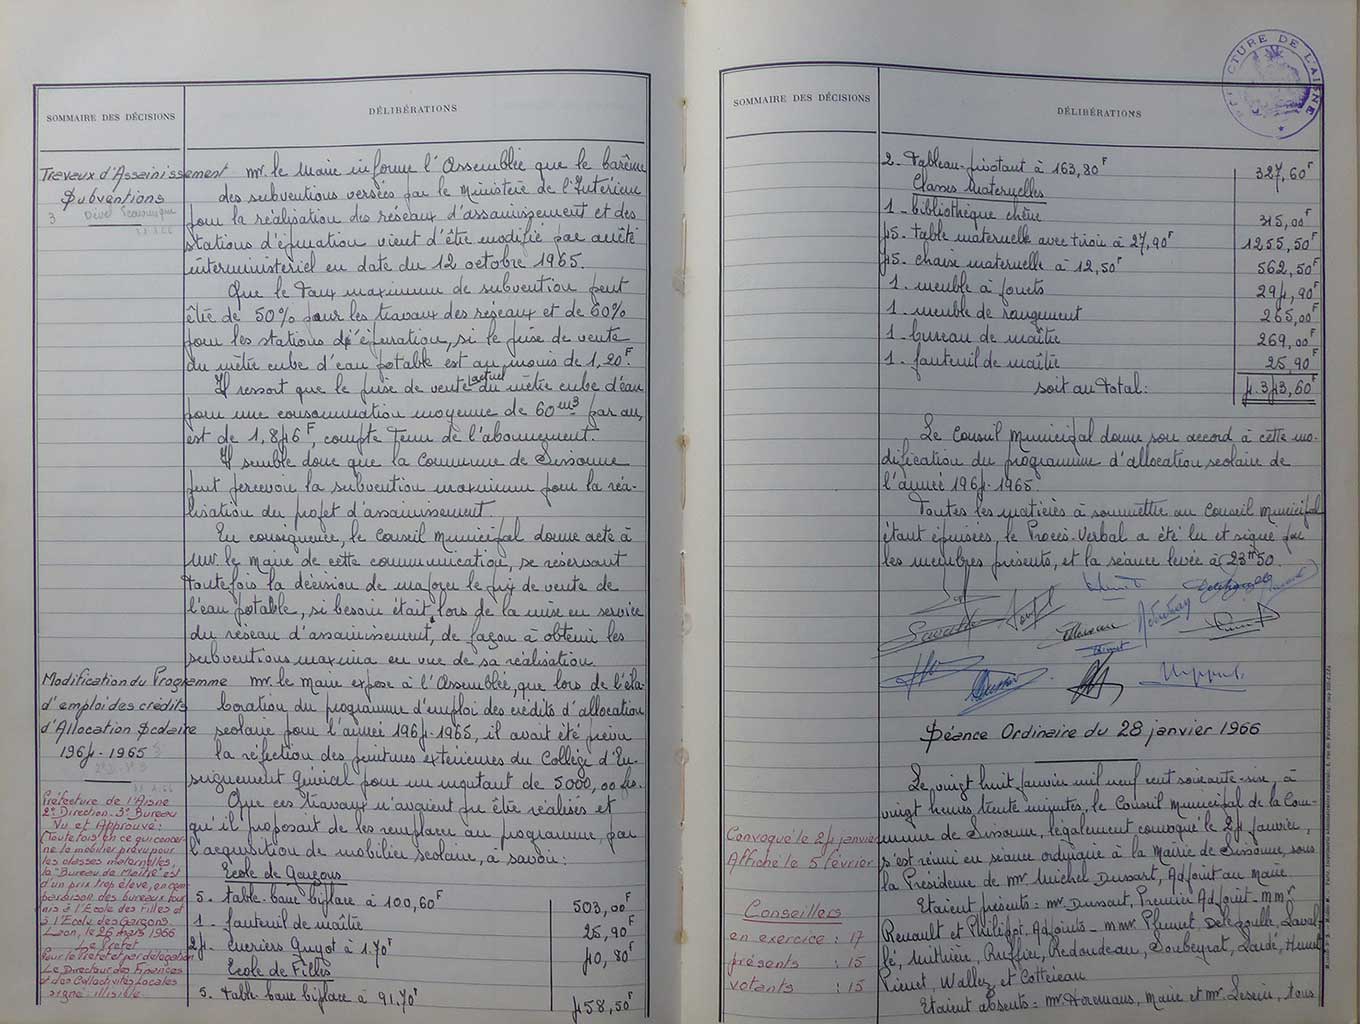 SOMMAIRE DES DÉCISIONS
DÉLIBÉRATIONS
Travaux d'Assainissement
Subventions
3
Mr. le Maire informe l'Assemblée que le barême
des subventions versées par le Ministère de l'Intérieur
pour la réalisation des réseaux d'assainissement et des
stations d'épuration vient d'être modifié par arrêté
interministériel en date du 12 octobre 1965.
Que le taux maximum de subvention peut
être de 50% pour les travaux des réseaux et de 60%
pour les stations d'épuration, si le prix de vente
du mètre cube d'eau potable est au moins de 1,20F
Il ressort que le prix de vente actuel du mètre cube d'eau
pour une consommation moyenne de 60 m3 par an,
est de 1,846F, compte tenu de l'abonnement.
Il semble donc que la Commune de Sissonne
peut percevoir la subvention maximum pour la réa-
lisation du projet d'assainissement.
En conséquence, le Conseil Municipal donne acte à
Mr. le Maire de cette communication, se réservant
toutefois la décision de majorer le prix de vente de
l'eau potable, si besoin était, lors de la mise en service
du réseau d'assainissement, de façon à obtenir les
subventions maxima en vue de sa réalisation.
Modification du Programme
d'emploi des crédits
d'Allocation Scolaire
1964-1965
Mr. le Maire expose à l'Assemblée, que lors de l'éla-
boration du programme d'emploi des crédits d'allocation
scolaire pour l'année 1964-1965, il avait été prévu
la réfection des peintures extérieures du Collège d'En-
seignement Général pour un montant de 5000,00 frs.
Que ces travaux n'avaient pu être réalisés et
qu'il proposait de les remplacer au programme, par
l'acquisition de mobilier scolaire, à savoir:
Ecole de Garçons
5. table-banc biplace à 100,60F 503,00F
1. fauteuil de maître 25,90F
24. encriers Guyot à 1.70F 40,80F
Ecole de Filles
5. table-banc biplace à 91.70F 458,50F
Préfecture de l'Aisne
2e Direction. 3e Bureau
Vu et Approuvé:
Toutefois, en ce qui concer-
ne le mobilier prévu pour
les classes maternelles,
le "Bureau de Maître" est
d'un prix trop élevé, en com
paraison des bureaux four
nis à l'Ecole des Filles et
à l'Ecole des Garçons.
Laon, le 26 mars 1966
Le Préfet
Pour le Préfet et par délégation
Le Directeur des Finances
et des Collectivités Locales
signé illisible
SOMMAIRE DES DÉCISIONS
DÉLIBÉRATIONS
PRÉFECTURE DE L'AISNE
2. Tableau-pivotant à 163,80F 327,60F
Classes Maternelles
1. bibliothèque chêne 315,00F
45. table maternelle avec tiroir à 27,90F 1255,50F
45. chaise maternelle à 12,50F 562,50F
1. meuble à fonts 294,90F
1. meuble de rangement 265,00F
1. bureau de maître 269,00F
1. fauteuil de maître 25,90F
soit au total: 4.343,60F
Le Conseil Municipal donne son accord à cette mo-
dification du programme d'allocation scolaire de
l'année 1964-1965.
Toutes les matières à soumettre au Conseil Municipal
étant épuisées, le Procès-Verbal a été lu et signé par
les membres présents, et la séance levée à 23H50.
Séance Ordinaire du 28 janvier 1966
Convoqué le 24 janvier
Affiché le 5 février
Conseillers
en exercice : 17
présents : 15
votants : 15
Le vingt huit janvier mil neuf cent soixante-six, à
vingt heures trente minutes, le Conseil Municipal de la Com-
mune de Sissonne, légalement convoqué le 24 janvier,
s'est réuni en séance ordinaire à la Mairie de Sissonne, sous
la Présidence de Mr Michel Dussart, Adjoint au Maire
Etaient présents: Mr. Dussart, Premier Adjoint - MMr
Renault et Philippi, Adjoints - MMr Plumet, Delezolle, Laval-
Ruffier, Redoudeau, Soubeyrat,
Pierret, Wallez et Cottereau
Etaient absents: Mr. Horemans, Maire et Mr. Leseur, tous